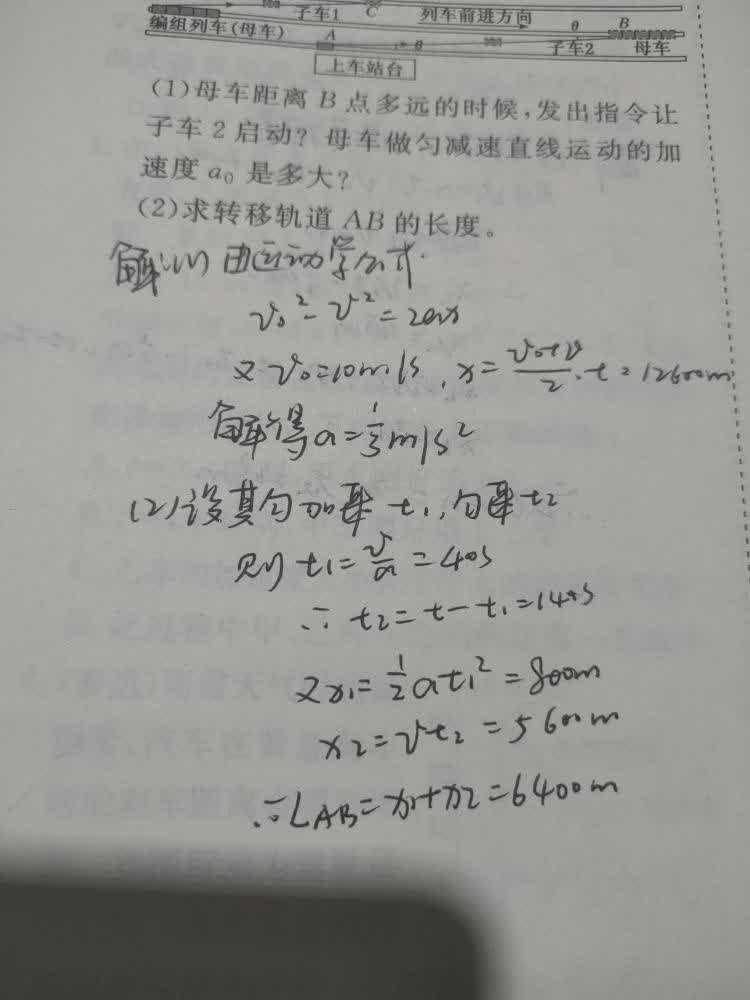 子车1 C 列车前进方向 θ B
编组列车(母车) A θ 子车2 母车
上车站台
(1)母车距离B点多远的时候,发出指令让
子车2启动?母车做匀减速直线运动的加
速度a₀是多大?
(2)求转移轨道AB的长度。
解:(1)由运动学公式
v₀²-v²=2a₀x
又v₀=10m/s,x=(v₀+v)/2·t=12600m
解得a=1/5m/s²
(2)设其匀加乘t₁,匀乘t₂
则t₁=v/a=40s
∴t₂=t-t₁=140s
又x₁=1/2at₁²=800m
x₂=vt₂=5600m
∴L_AB=x₁+x₂=6400m